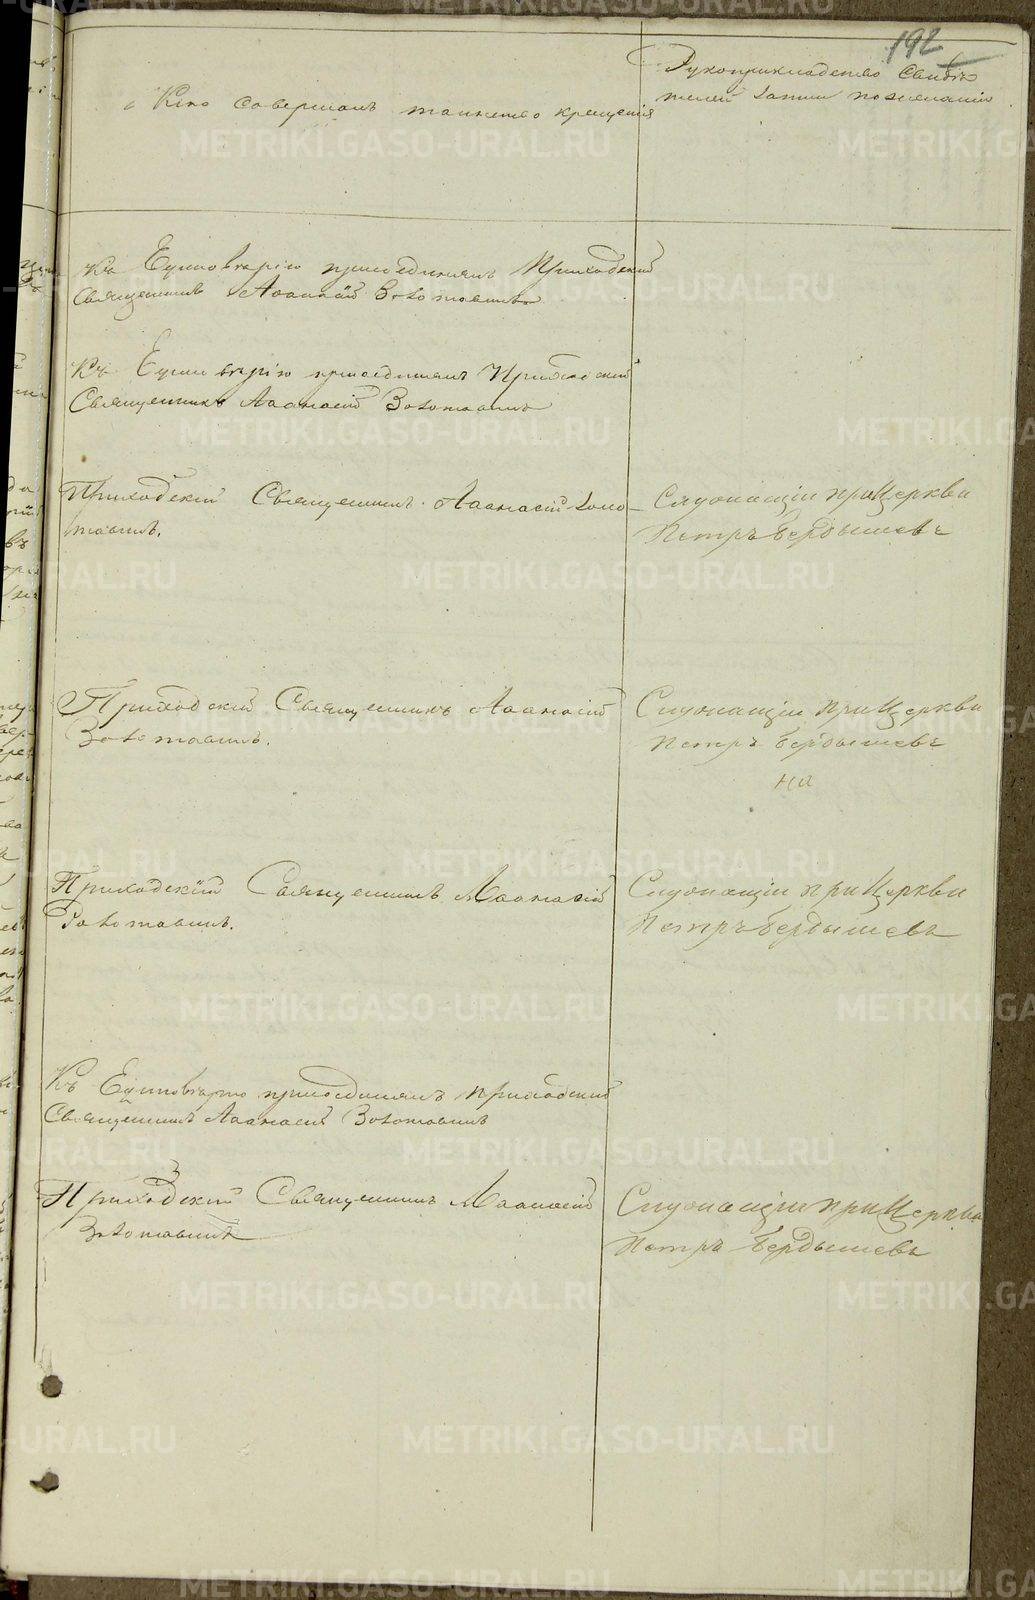 192
Кто совершалъ таинство крещенія
Рукоприкладство свидѣ
телей записи по желанію
Къ Единовѣрію присоединялъ Приходскій
Священникъ Аѳанасій Золотавинъ
Къ Единовѣрію присоединялъ Приходскій
Священникъ Аѳанасій Золотавинъ
Приходскій Священникъ Аѳанасій Золо
тавинъ.
Служащіи при Церкви
Петръ Бердышевъ
Приходскій Священникъ Аѳанасій
Золотавинъ.
Служащіи при Церкви
Петръ Бердышевъ
на
Приходскій Священникъ Аѳанасій
Золотавинъ.
Служащіи при Церкви
Петръ Бердышевъ
Къ Единовѣрію присоединялъ приходскій
Священникъ Аѳанасій Золотавинъ
Приходскій Священникъ Аѳанасій
Золотавинъ
Служащіи при Церкви
Петръ Бердышевъ
METRIKI.GASO-URAL.RU